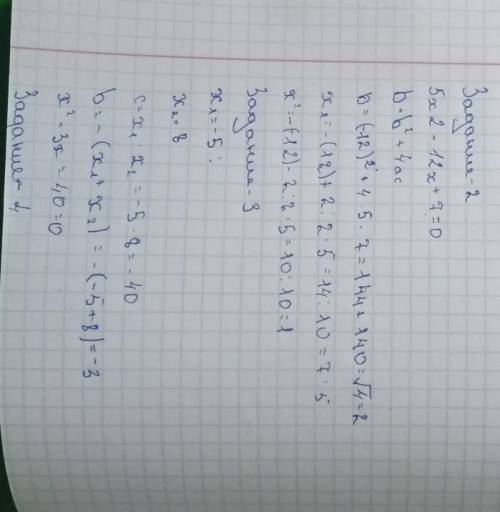 Задание-2
5x2 - 12x + 7 = 0
b = b² + 4ac
b = (-12)² + 4 · 5 · 7 = 144 + 140 = √4 = 2
x₁ = -(12) + 2 : 2 · 5 = 14 : 10 = 7 : 5
x² = -(-12) - 2 : 2 · 5 = 10 : 10 = 1
Задание-3
x₁ = -5 ;
x₂ = 8
c = x₁ · x₂ = -5 · 8 = -40
b = -(x₁ + x₂) = -(-5 + 8) = -3
x² - 3x = 40 = 0
Задание 4